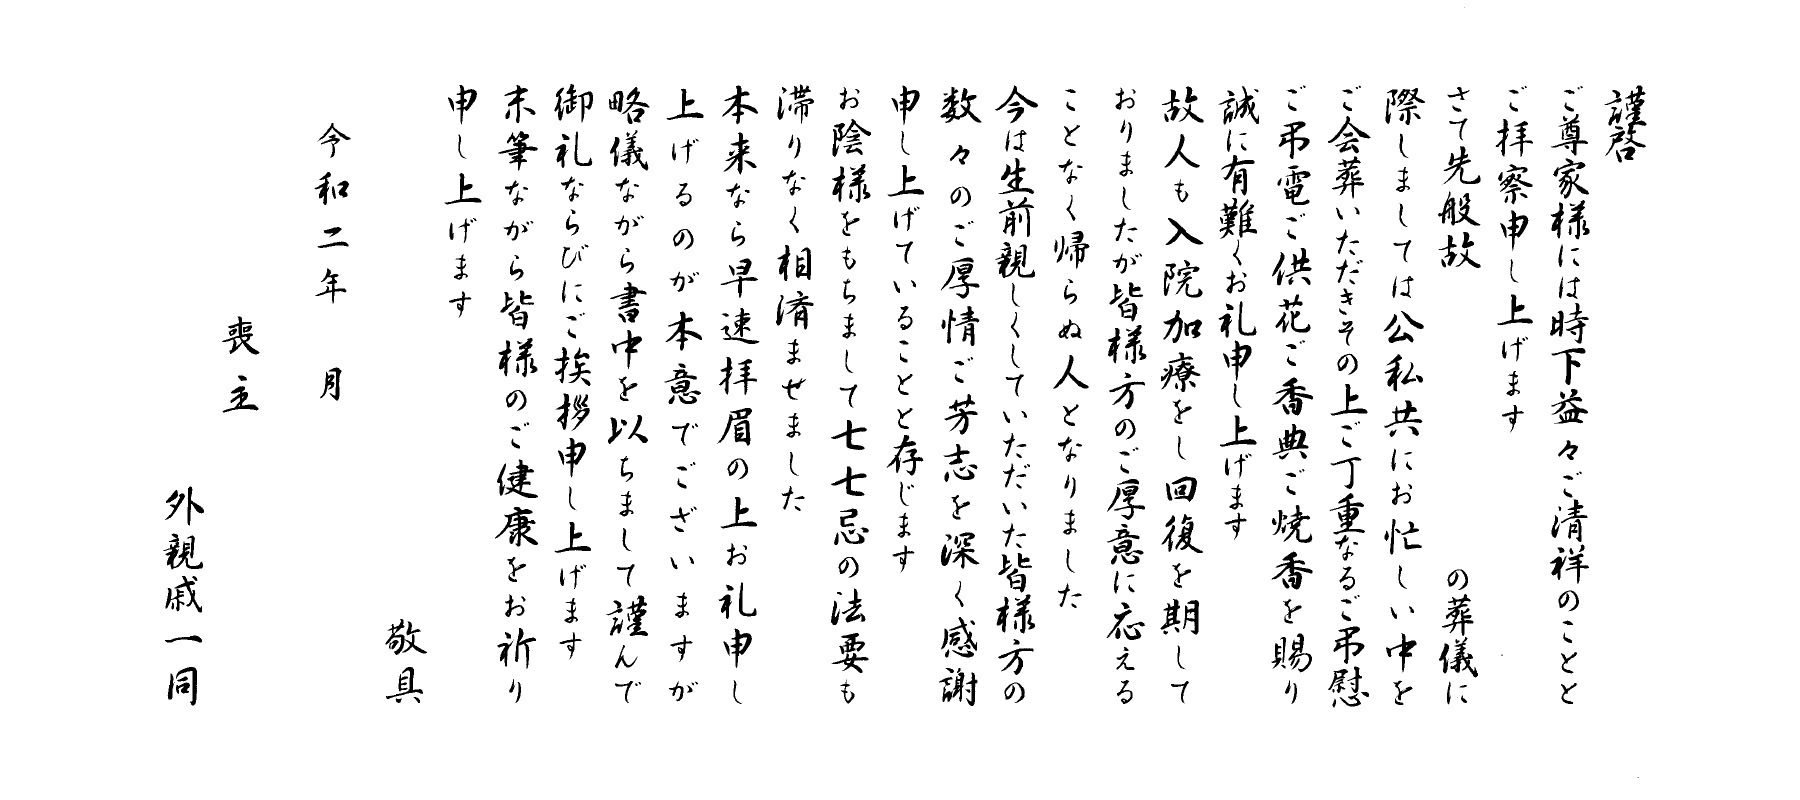 謹啓
ご尊家様には時下益々ご清祥のことと
ご拝察申し上げます
さて先般故　　　　　　の葬儀に
際しましては公私共にお忙しい中を
ご会葬いただきその上ご丁重なるご弔慰
ご弔電ご供花ご香典ご焼香を賜り
誠に有難くお礼申し上げます
故人も入院加療をし回復を期して
おりましたが皆様方のご厚意に応える
ことなく帰らぬ人となりました
今は生前親しくしていただいた皆様方の
数々のご厚情ご芳志を深く感謝
申し上げていることと存じます
お陰様をもちまして七七忌の法要も
滞りなく相済ませました
本来なら早速拝眉の上お礼申し
上げるのが本意でございますが
略儀ながら書中を以ちまして謹んで
御礼ならびにご挨拶申し上げます
末筆ながら皆様のご健康をお祈り
申し上げます
敬具
令和二年　月
喪主
外親戚一同